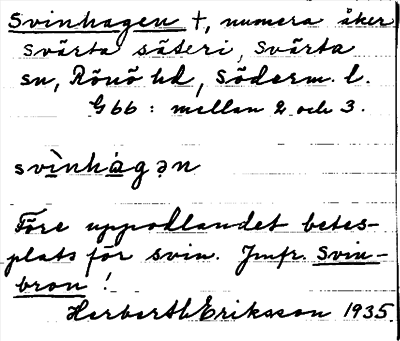 Svinhagen †, numera åker
Svärta säteri, Svärta
sn, Rönö hd, Söderm. l.
G 66 : mellan 2 och 3.
svìnhágən
Före uppodlandet betes-
plats för svin. Jmfr. Svin-
bron!
Herbert Eriksson 1935.